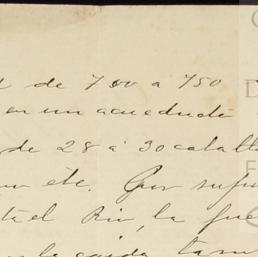 de 700 a 750
en un acueducto
de 28 á 30 caball
etc. Que supu
el Rio, la fue
la caida tam